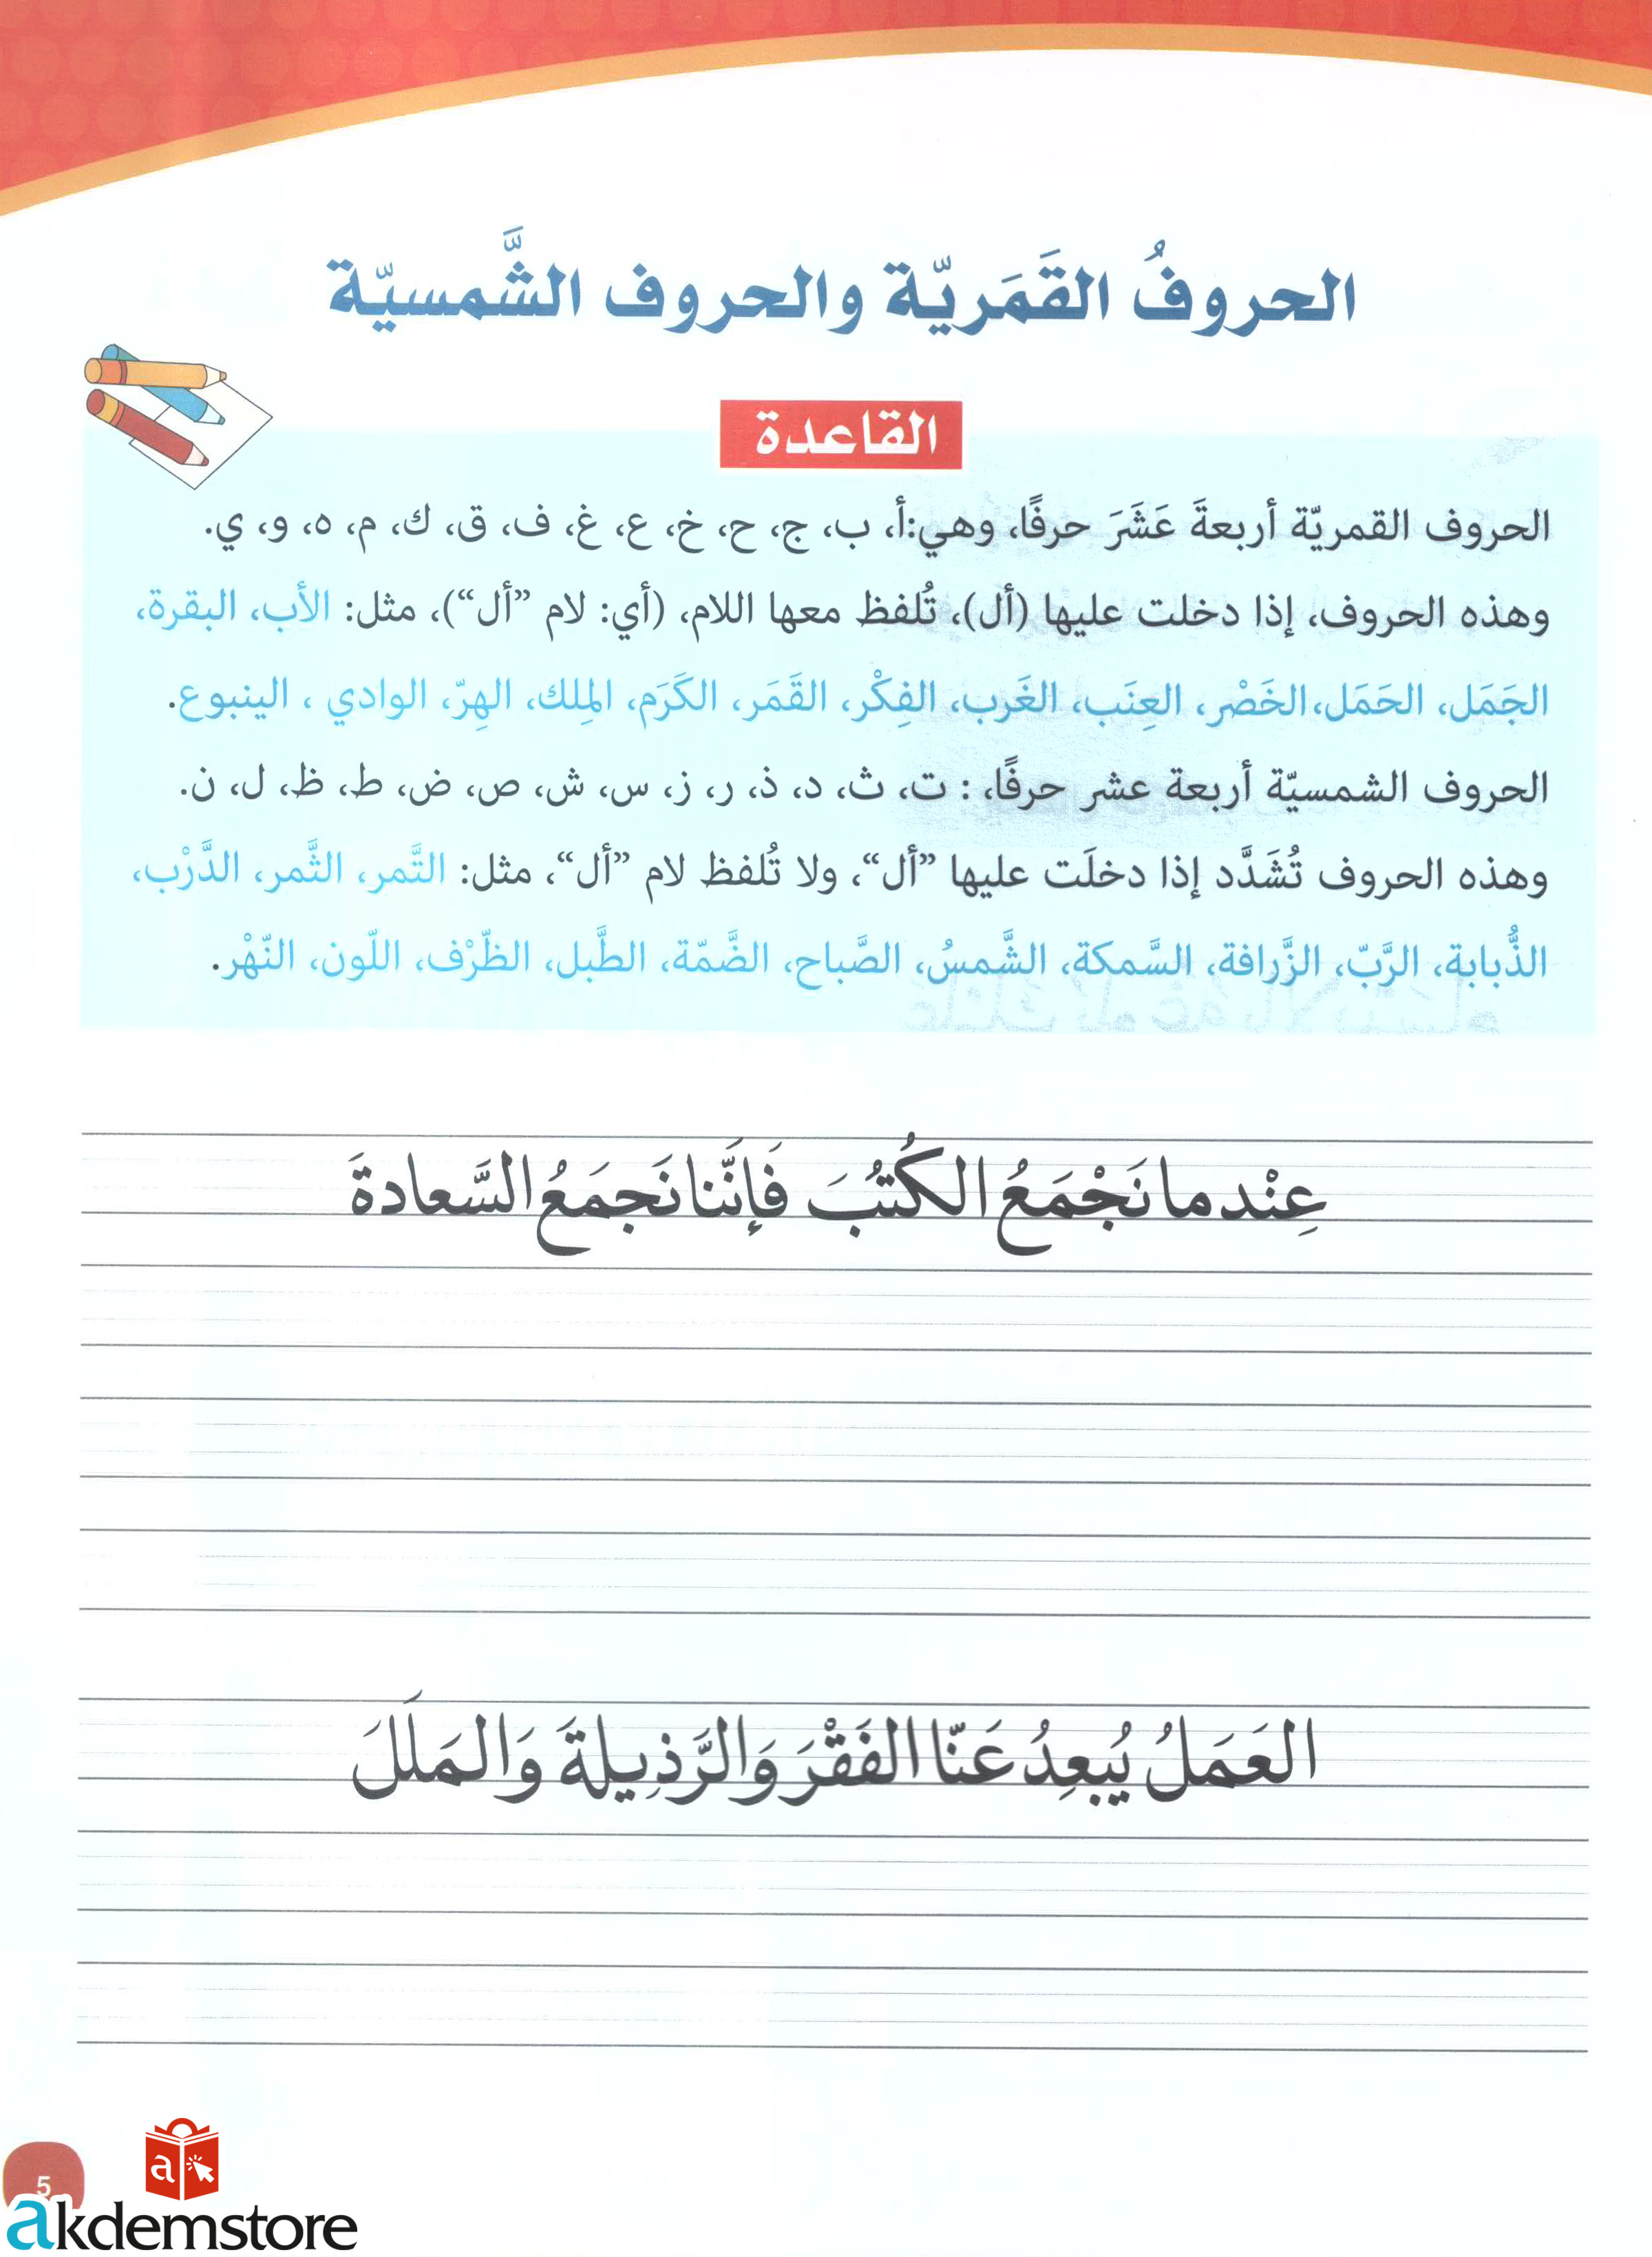 الحروفُ القَمَريّة والحروف الشَّمسيّة
القاعدة
الحروف القمريّة أربعةَ عَشَرَ حرفًا، وهي:أ، ب، ج، ح، خ، ع، غ، ف، ق، ك، م، ه، و، ي.
وهذه الحروف، إذا دخلت عليها (أل)، تُلفظ معها اللام، (أي: لام ”أل“)، مثل: الأب، البقرة،
الجَمَل، الحَمَل،الخَصْر، العِنَب، الغَرب، الفِكْر، القَمَر، الكَرَم، المِلك، الهِرّ، الوادي ، الينبوع.
الحروف الشمسيّة أربعة عشر حرفًا، : ت، ث، د، ذ، ر، ز، س، ش، ص، ض، ط، ظ، ل، ن.
وهذه الحروف تُشَدَّد إذا دخلَت عليها ”أل“، ولا تُلفظ لام ”أل“، مثل: التَّمر، الثَّمر، الدَّرْب،
الذُّبابة، الرَّبّ، الزَّرافة، السَّمكة، الشَّمسُ، الصَّباح، الضَّمّة، الطَّبل، الظّرْف، اللّون، النّهْر.
عِنْدما نَجْمَعُ الكُتُبَ فَإنَّنا نَجمَعُ السَّعادةَ
العَمَلُ يُبعِدُ عَنّا الفَقْرَ وَالرَّذِيلةَ وَالمَلَلَ
5
akdemstore